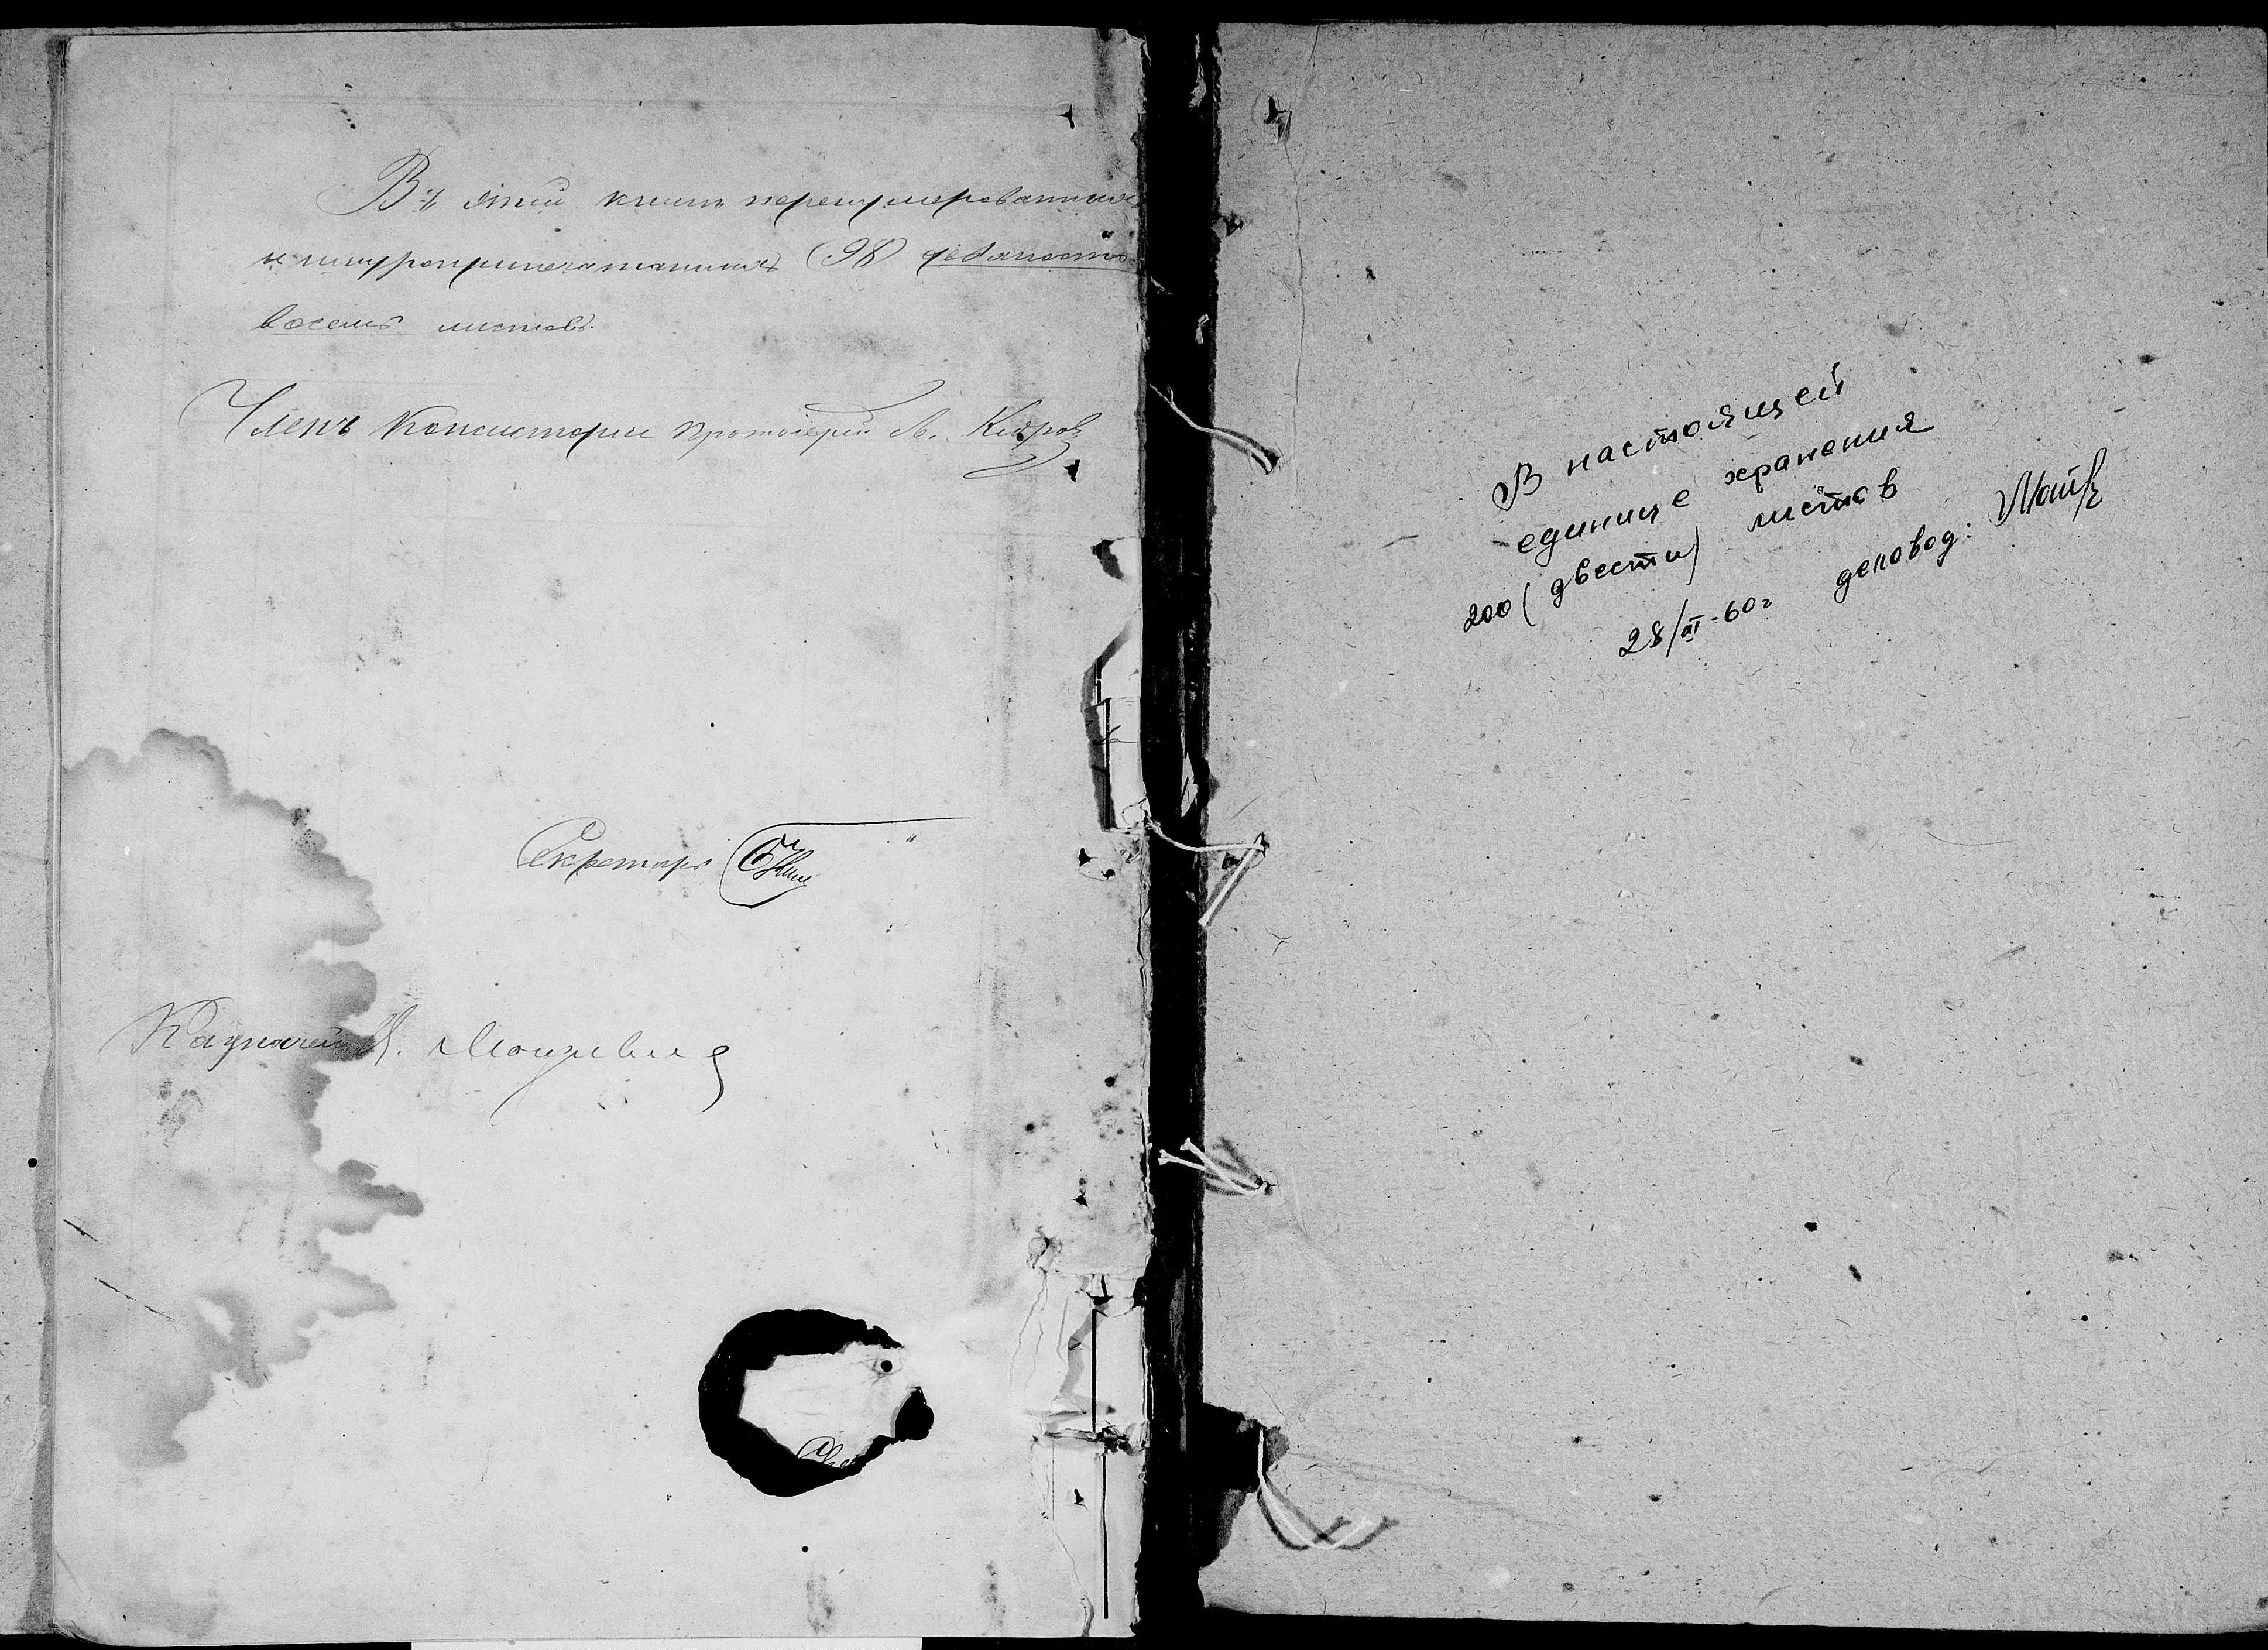 Въ этой книгѣ перенумерованныхъ
и шнуроприпечатанныхъ (98) девяносто
восемь листовъ.
Членъ Консисторіи Протоіерей
Секретарь
Казначей
В настоящей
единице хранения
200 (двести) листов
28/XI-60г деловод: